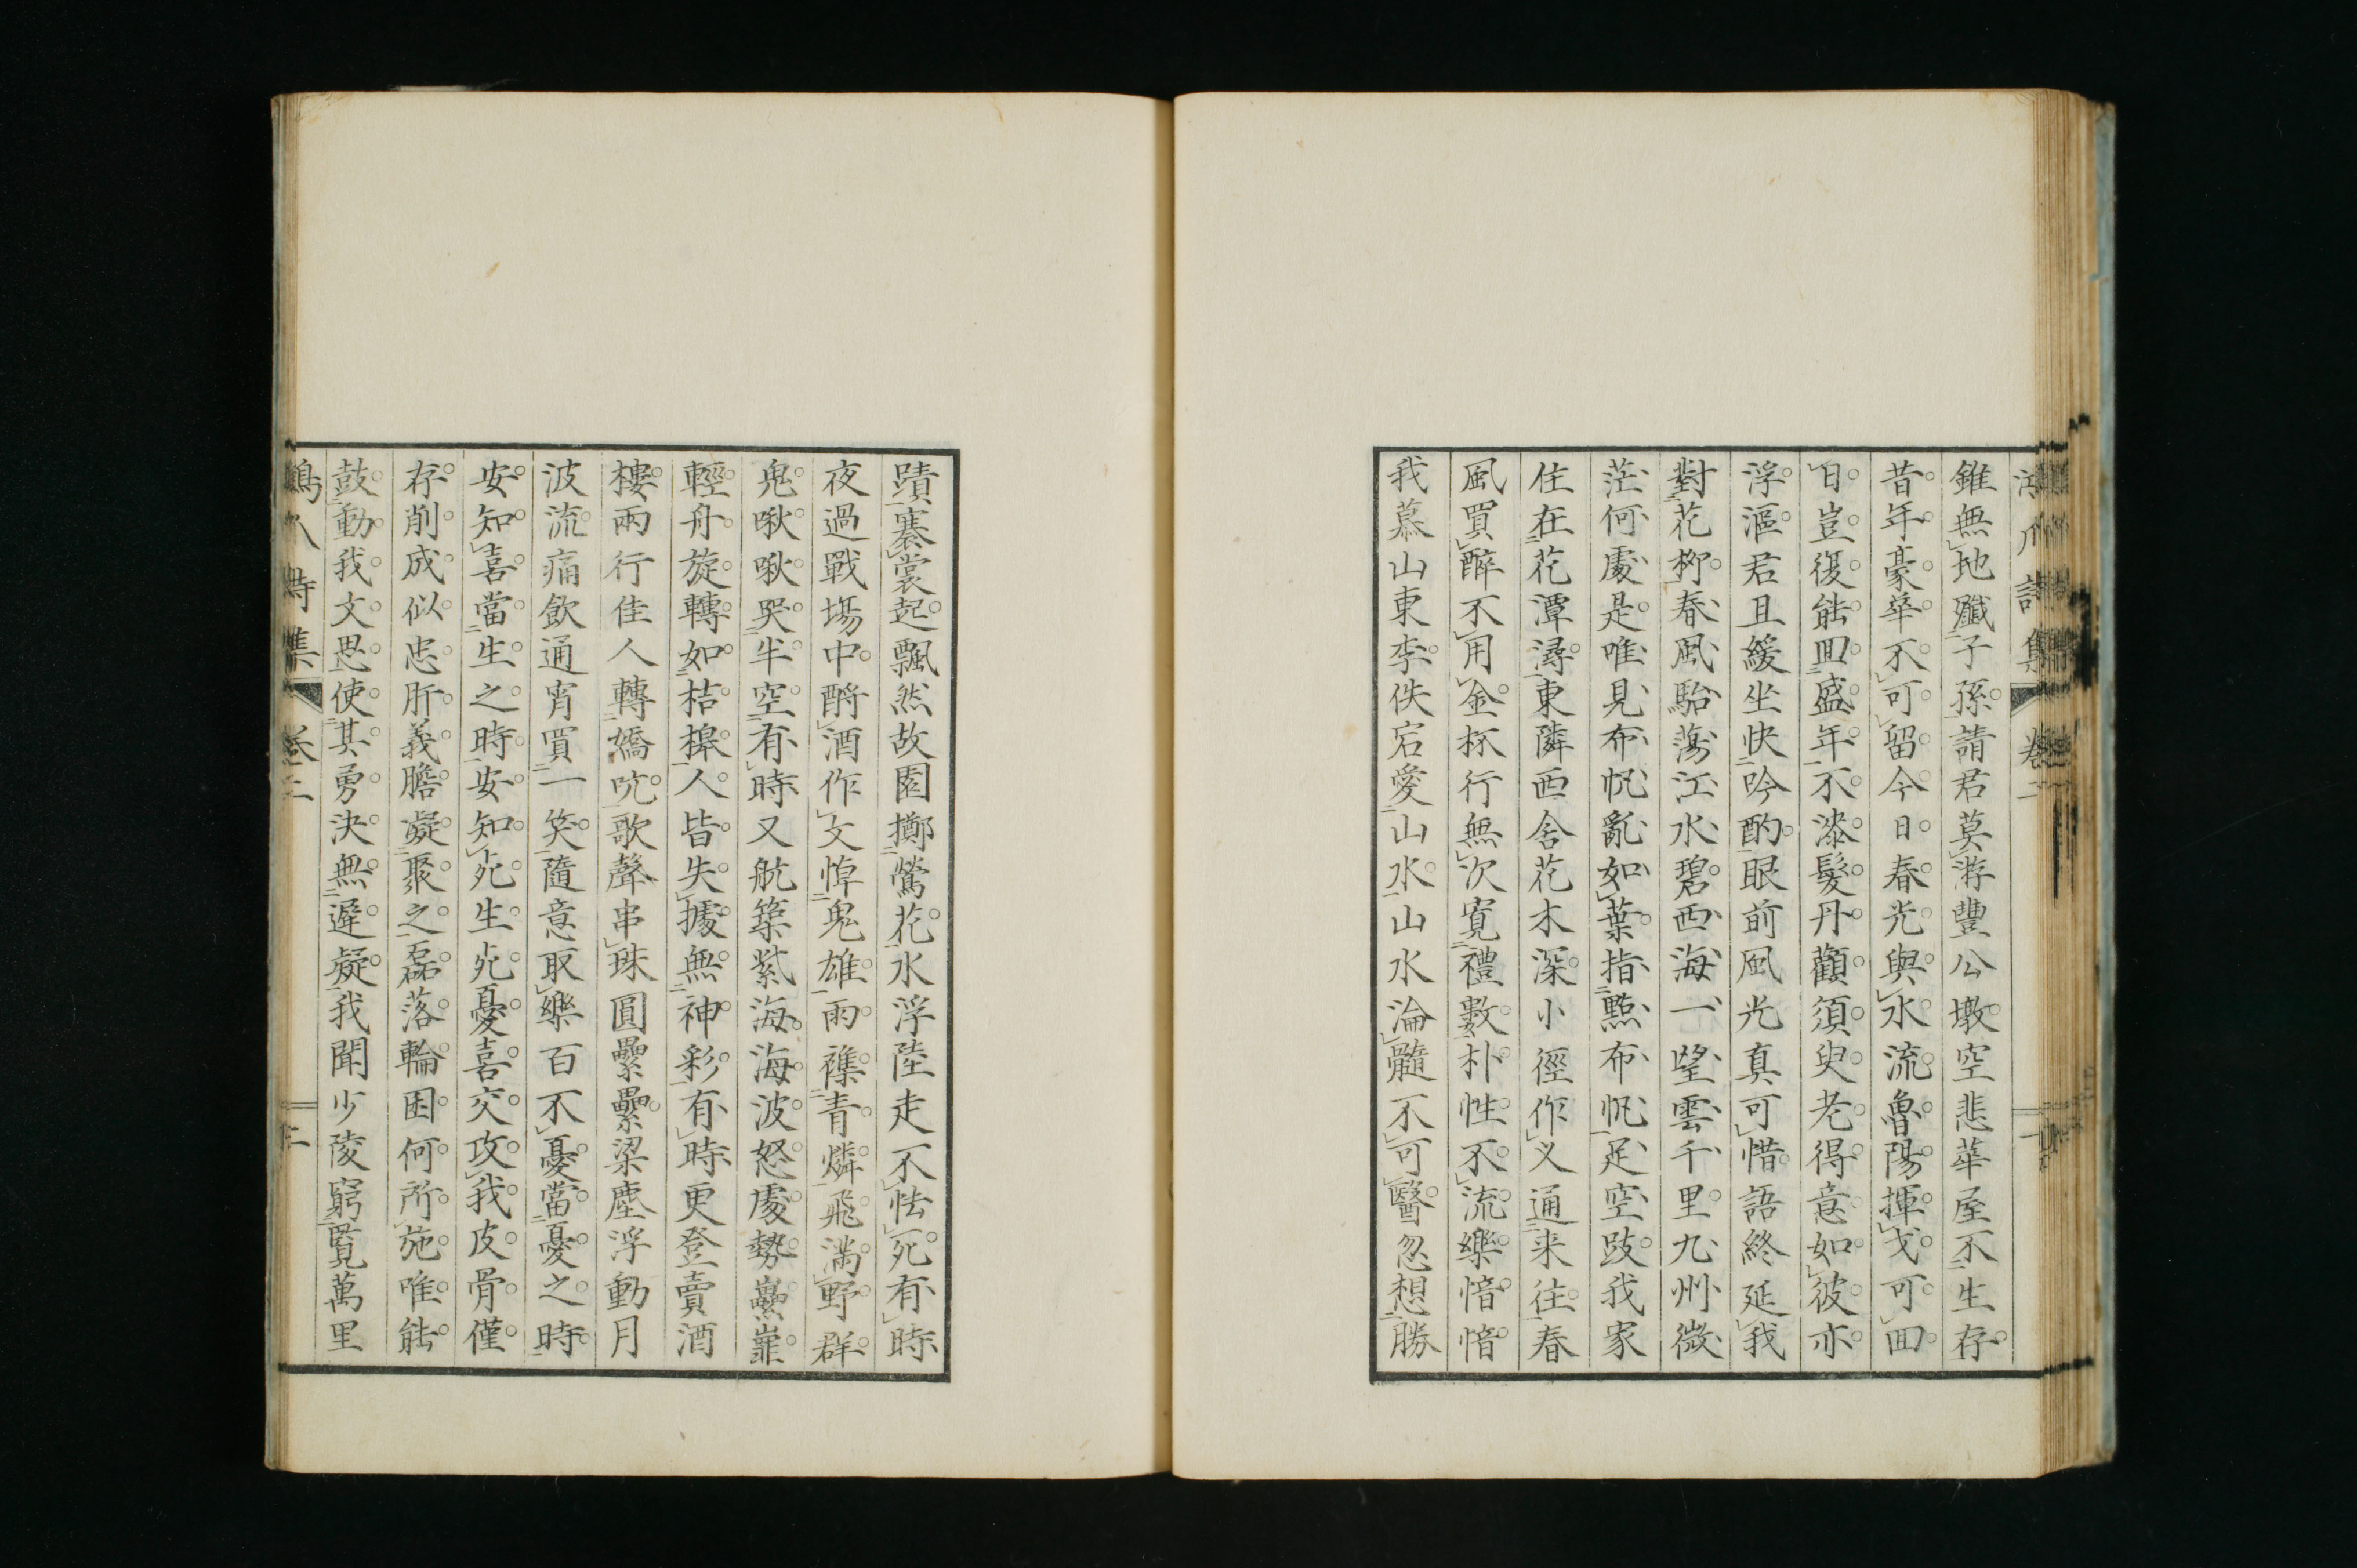 錐無地殲子孫請君莫游豐公墩空悲華屋不生存
昔年豪華不可留今日春光與水流魯陽揮戈可回
日豈復能回盛年不漆髮丹顴須臾老得意如彼亦
浮漚君且緩坐快吟酌眼前風光真可惜語終延我
對花柳春風駘蕩江水碧西海一望雲千里九州微
茫何處是唯見布帆亂如葉指點布帆足空跂我家
住在花潭潯東隣西舍花木深小徑作义通来往春
風買醉不用金杯行無次寬禮數朴性不流樂愔愔
我慕山東李佚宕愛山水山水淪髓不可醫忽想勝
蹟褰裳起飄然故園擲鶯花水浮陸走不怯死有時
夜過戰場中酹酒作文悼鬼雄雨襍青燐飛滿野群
鬼啾啾哭半空有時又航築紫海海波怒處勢纍嶵
輕舟旋轉如桔槹人皆失據無神彩有時更登賣酒
樓兩行佳人轉嬌吭歌聲串珠圓纍纍梁塵浮動月
波流痛飲通宵買一笑隨意取樂百不憂當憂之時
安知喜當生之時安知死生死憂喜交攻我皮骨僅
存削成似忠肝義膽凝聚之磊落輪囷何所施唯能
鼓動我文思使其勇決無遲凝我聞少陵窮覧萬里